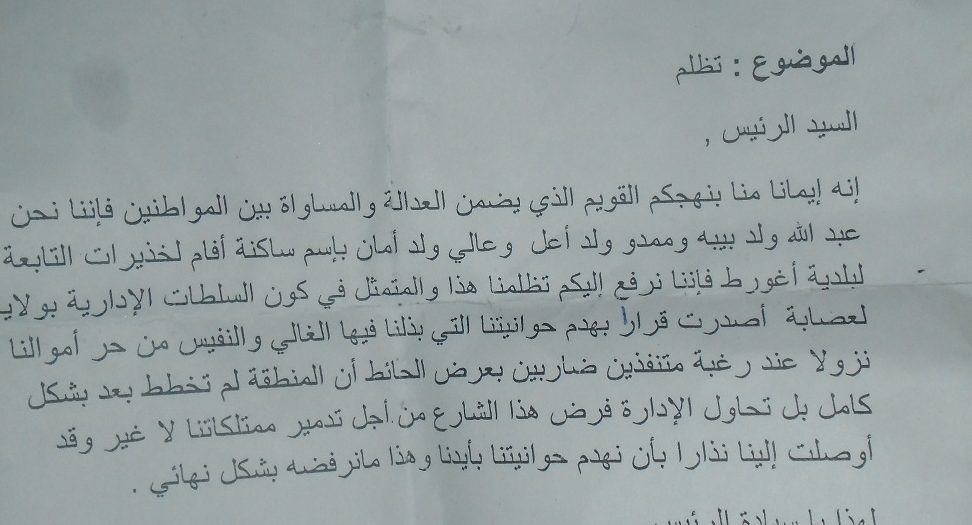 الموضوع : تظلم
السيد الرئيس ,
إنه إيمانا منا بنهجكم القويم الذي يضمن العدالة والمساواة بين المواطنين فإننا نحن
عبد الله ولد بيبه وممدو ولد أعل وعالي ولد أمان بإسم ساكنة أفام لخذيرات التابعة
لبلدية أغورط فإننا نرفع إليكم تظلمنا هذا والمتمثل في كون السلطات الإدارية بولاي
لعصابة أصدرت قرارا بهدم حوانيتنا التي بذلنا فيها الغالي والنفيس من حر أموالنا
نزولا عند رغبة متنفذين ضاربين بعرض الحائط أن المنطقة لم تخطط بعد بشكل
كامل بل تحاول الإدارة فرض هذا الشارع من أجل تدمير ممتلكاتنا لا غير وقد
أوصلت إلينا نذارا بأن نهدم حوانيتنا بأيدنا وهذا مانرفضه بشكل نهائي .
لهذا يا سيادة الرئيس